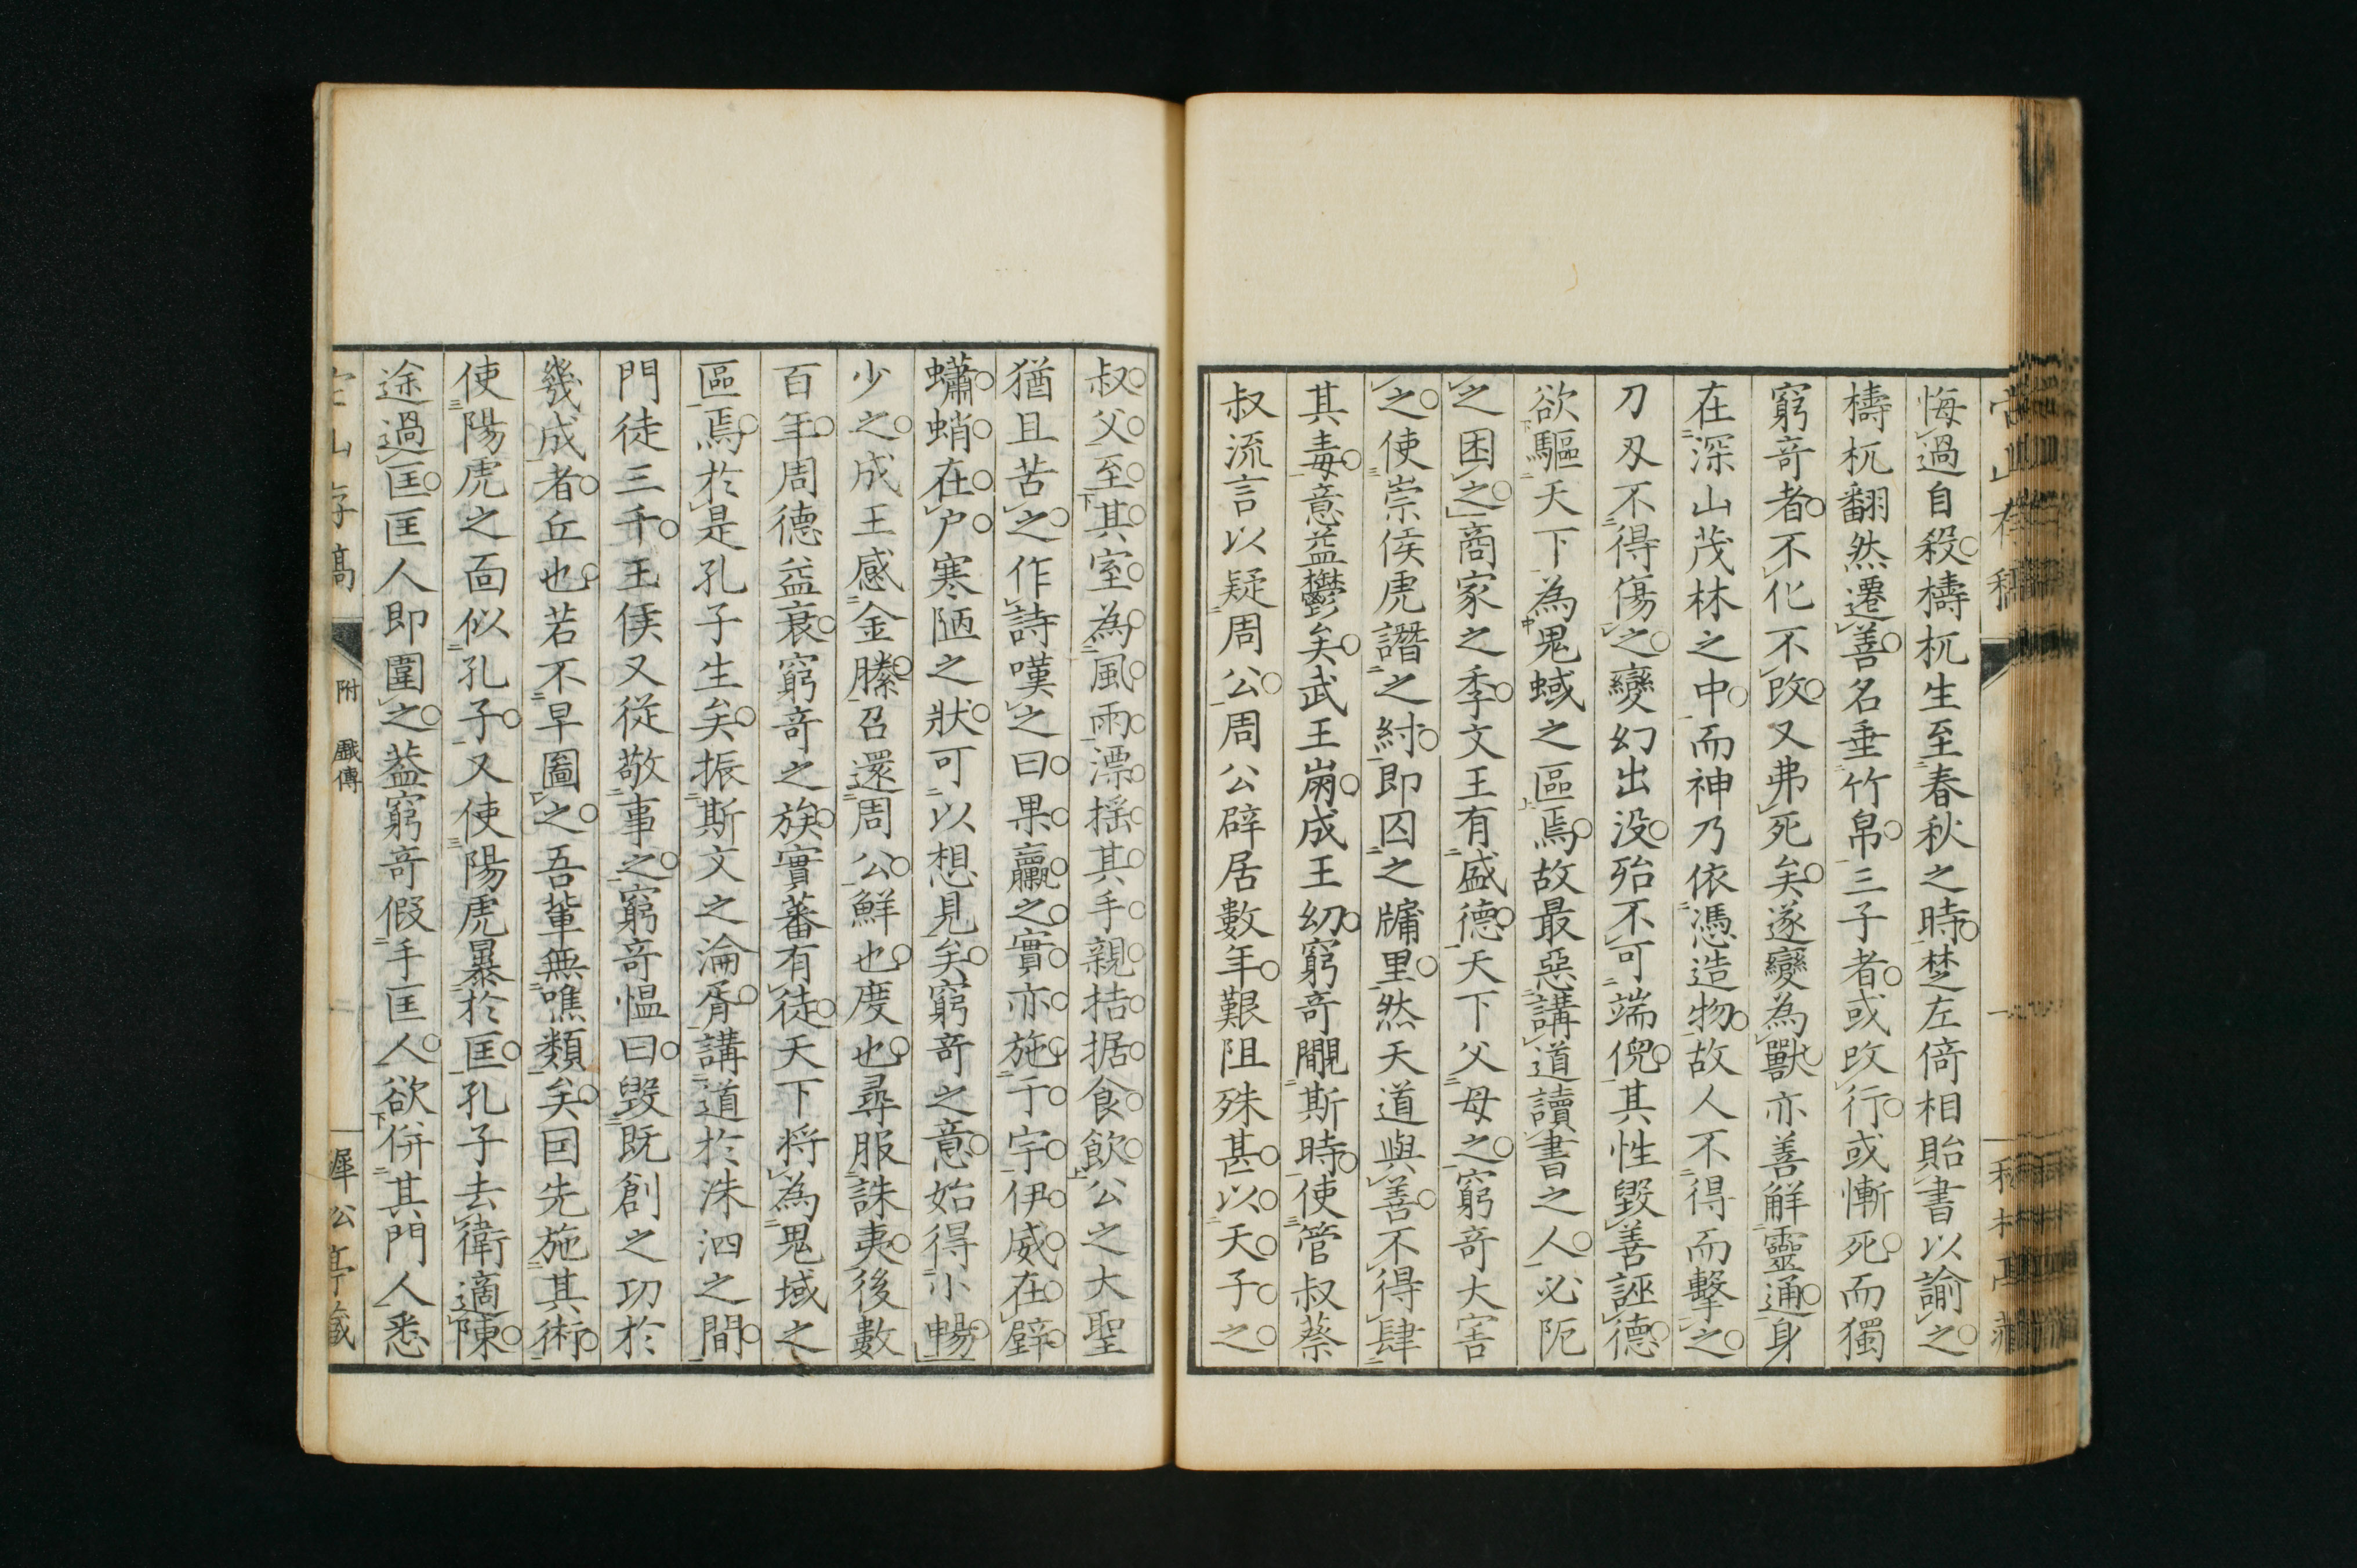 悔過自殺檮杌生至春秋之時楚左倚相貽書以諭之
檮杌翻然遷善名垂竹帛三子者或改行或慚死而獨
窮奇者不化不改又弗死矣遂變為獸亦善解靈通身
在深山茂林之中而神乃依憑造物故人不得而擊之
刀刃不得傷之變幻出没殆不可端倪其性毀善誣德
欲驅天下為鬼蜮之區焉故最惡講道讀書之人必阨
之困之商家之季文王有盛德天下父母之窮奇大害
之使崇侯虎譖之紂即囚之牖里然天道與善不得肆
其毒意益鬱矣武王崩成王幼窮奇瞷斯時使管叔蔡
叔流言以疑周公周公辟居數年艱阻殊甚以天子之
叔父至其室為風雨漂搖其手親拮据食飲公之大聖
猶且苦之作詩嘆之曰果蠃之實亦施于宇伊威在壁
蠨蛸在户寒陋之狀可以想見矣窮奇之意始得小暢
少之成王感金縢召還周公鮮也度也尋服誅夷後數
百年周德益衰窮奇之族實蕃有徒天下将為鬼域之
區焉於是孔子生矣振斯文之淪胥講道於洙泗之間
門徒三千王侯又從敬事之窮奇愠曰毀既創之功於
幾成者丘也若不早圖之吾輩無噍類矣囙先施其術
使陽虎之面似孔子又使陽虎暴於匡孔子去衛適陳
途過匡匡人即圍之蓋窮奇假手匡人欲併其門人悉
附 戲傳